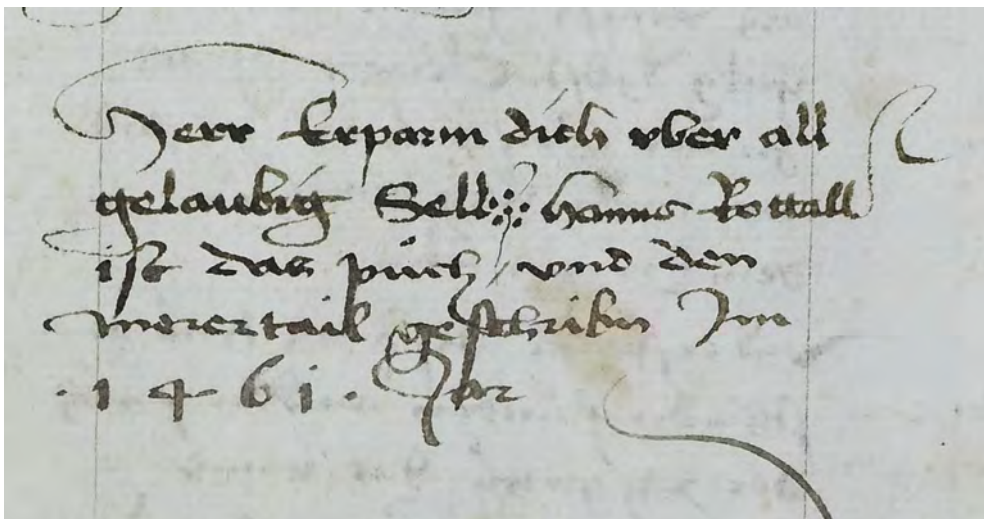 Herr Erparm dich vber all
gelaubig Sell hanns Rottall
ist das püch / vnd den
merertail geschribn Im
.1461. Jar